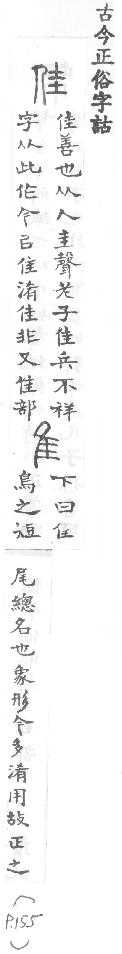 古今正俗字詁
佳
佳善也从人圭聲老子佳兵不祥
字从此作今㠯隹淆佳非又隹部
隹
下曰隹
鳥之短
尾總名也象形今多淆用故正之
(P.155)